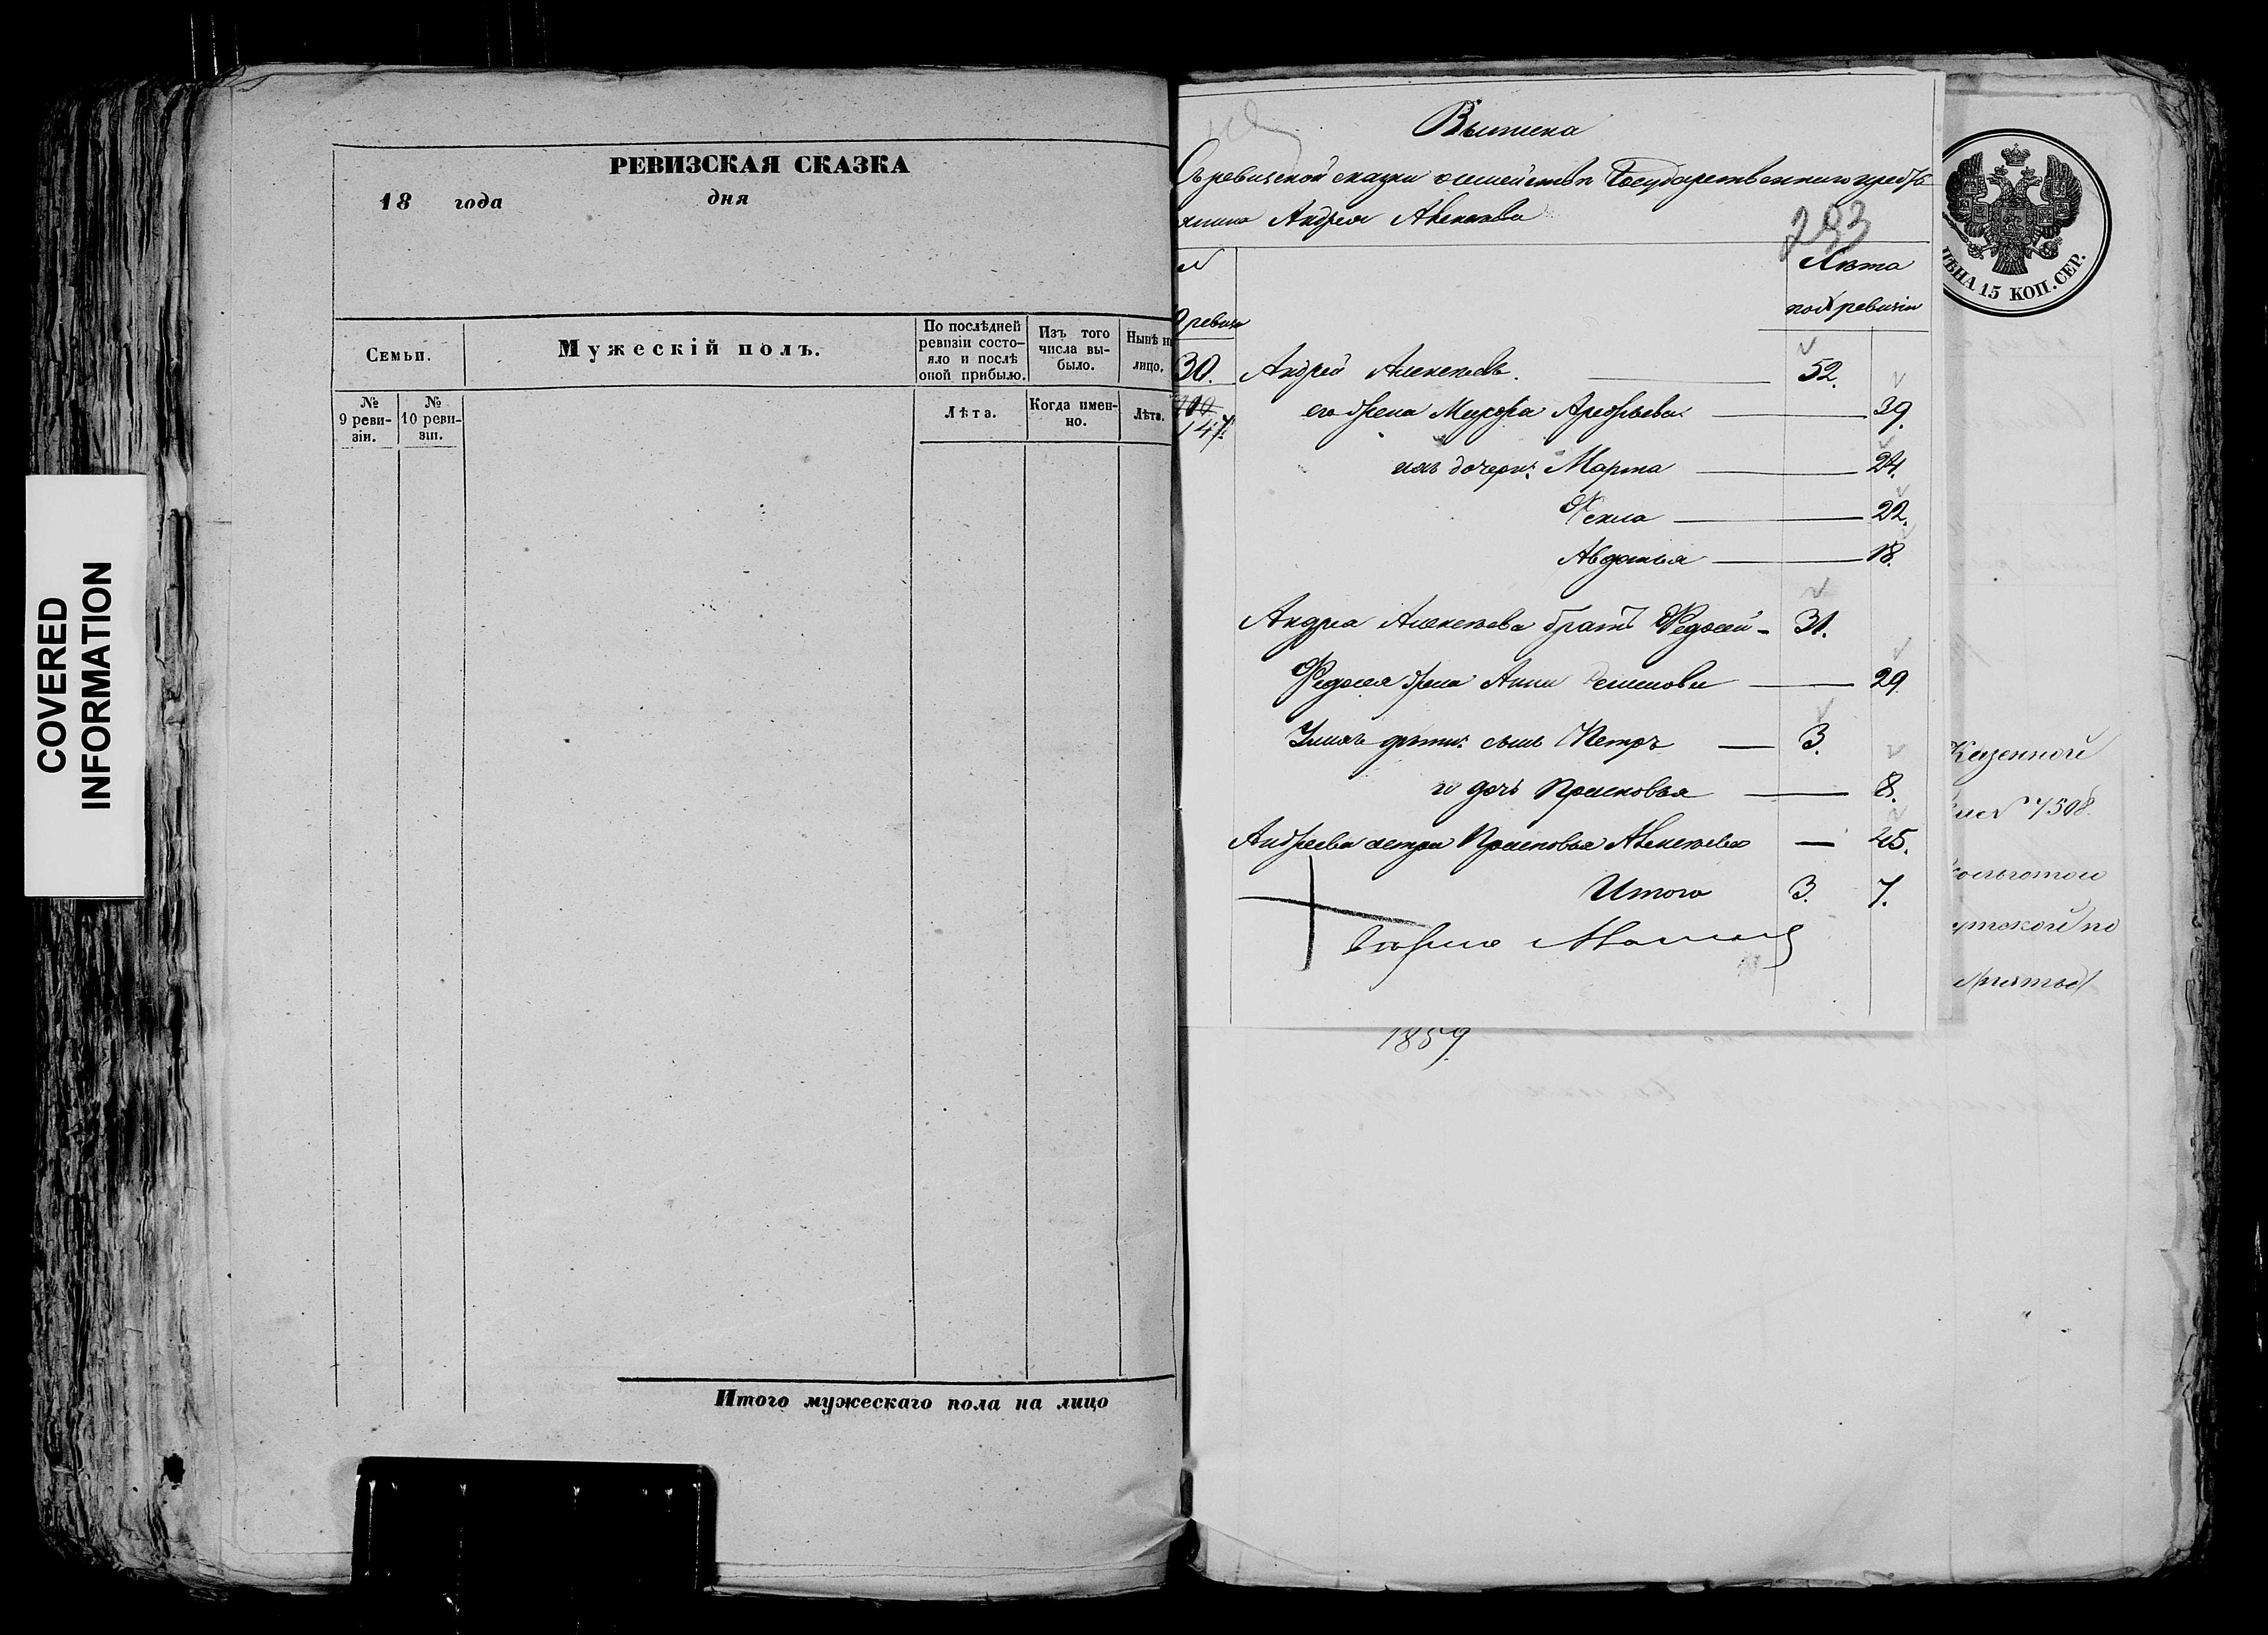 COVERED
INFORMATION
РЕВИЗСКАЯ СКАЗКА
18 года дня
Семьи.
Мужескій полъ.
По послѣдней
ревизіи состо-
яло и послѣ
оной прибыло.
Изъ того
числа вы-
было.
Нынѣ н
лицо.
№
9 реви-
зіи.
№
10 реви-
зіи.
Лѣта.
Когда имен-
но.
Лѣта.
Итого мужескаго пола на лицо
Выписка
Съ ревизской сказки о семействѣ Государственнаго крестья
янина Андрея Алексѣева
293
№
ревизи
Лѣта
по ревизіи
30. Андрей Алексѣевъ. 52.
147. его жена Марфа 39.
ихъ дочери: Марта 24.
Фекла 22.
Авдотья 18.
Андрея Алексѣева братъ Федосей 31.
Федосея жена Анна 29.
У нихъ дѣти: сынъ Петръ 3.
и дочь Прасковья 8.
Андреева сестра Прасковья Алексѣева 45.
Итого 3. 7.
ЦѢНА 15 КОП. СЕР.
Казенной
№ 7508.
1859